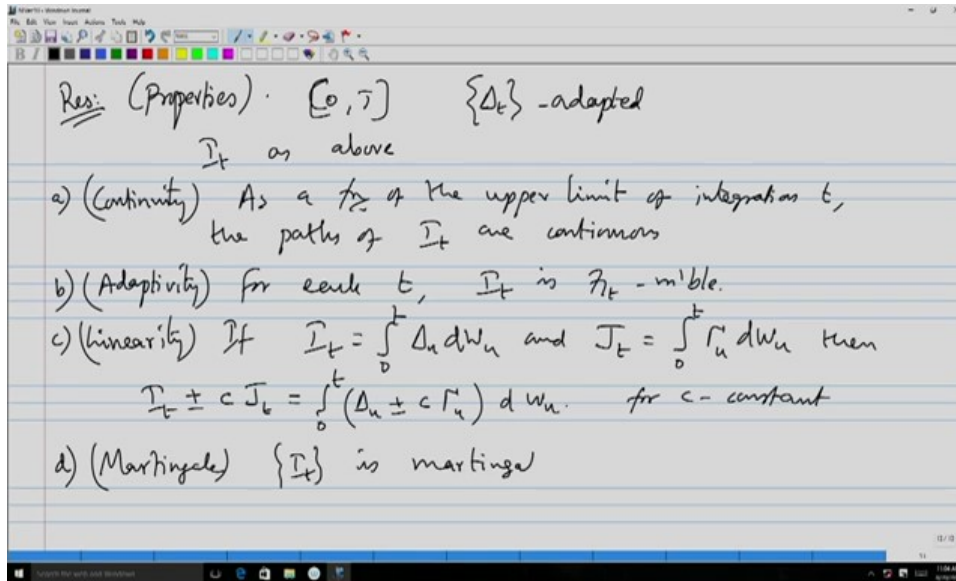 Res: (Properties). [0, T] {Δ_t} - adapted
I_t as above
a) (Continuity) As a fn of the upper limit of integration t,
the paths of I_t are continuous
b) (Adaptivity) For each t, I_t is ℱ_t - m'ble.
c) (Linearity) If I_t = ∫_0^t Δ_u dW_u and J_t = ∫_0^t Γ_u dW_u then
I_t ± c J_t = ∫_0^t (Δ_u ± c Γ_u) dW_u. for c - constant
d) (Martingale) {I_t} is martingal